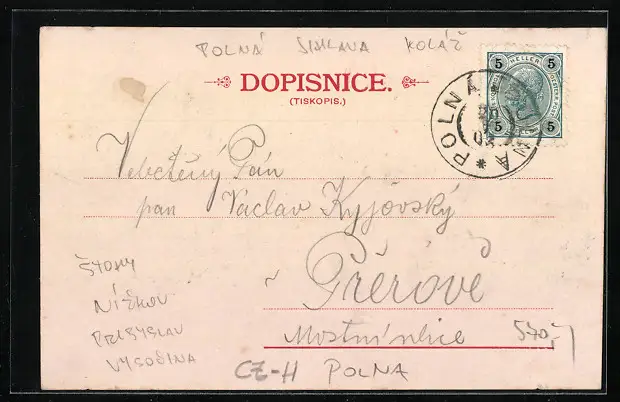 POLNÁ JIHLAVA KOLÁŘ
DOPISNICE.
(TISKOPIS.)
5 HELLER 5
5 5
POLNÁ * POLNA *
Velectěný Pán
pan Václav Kyjovský
v Přerově
Mostní ulice
ŠTOKY
NÍŽKOV
PŘIBYSLAV
VYSOČINA
570,-
CZ-H POLNA